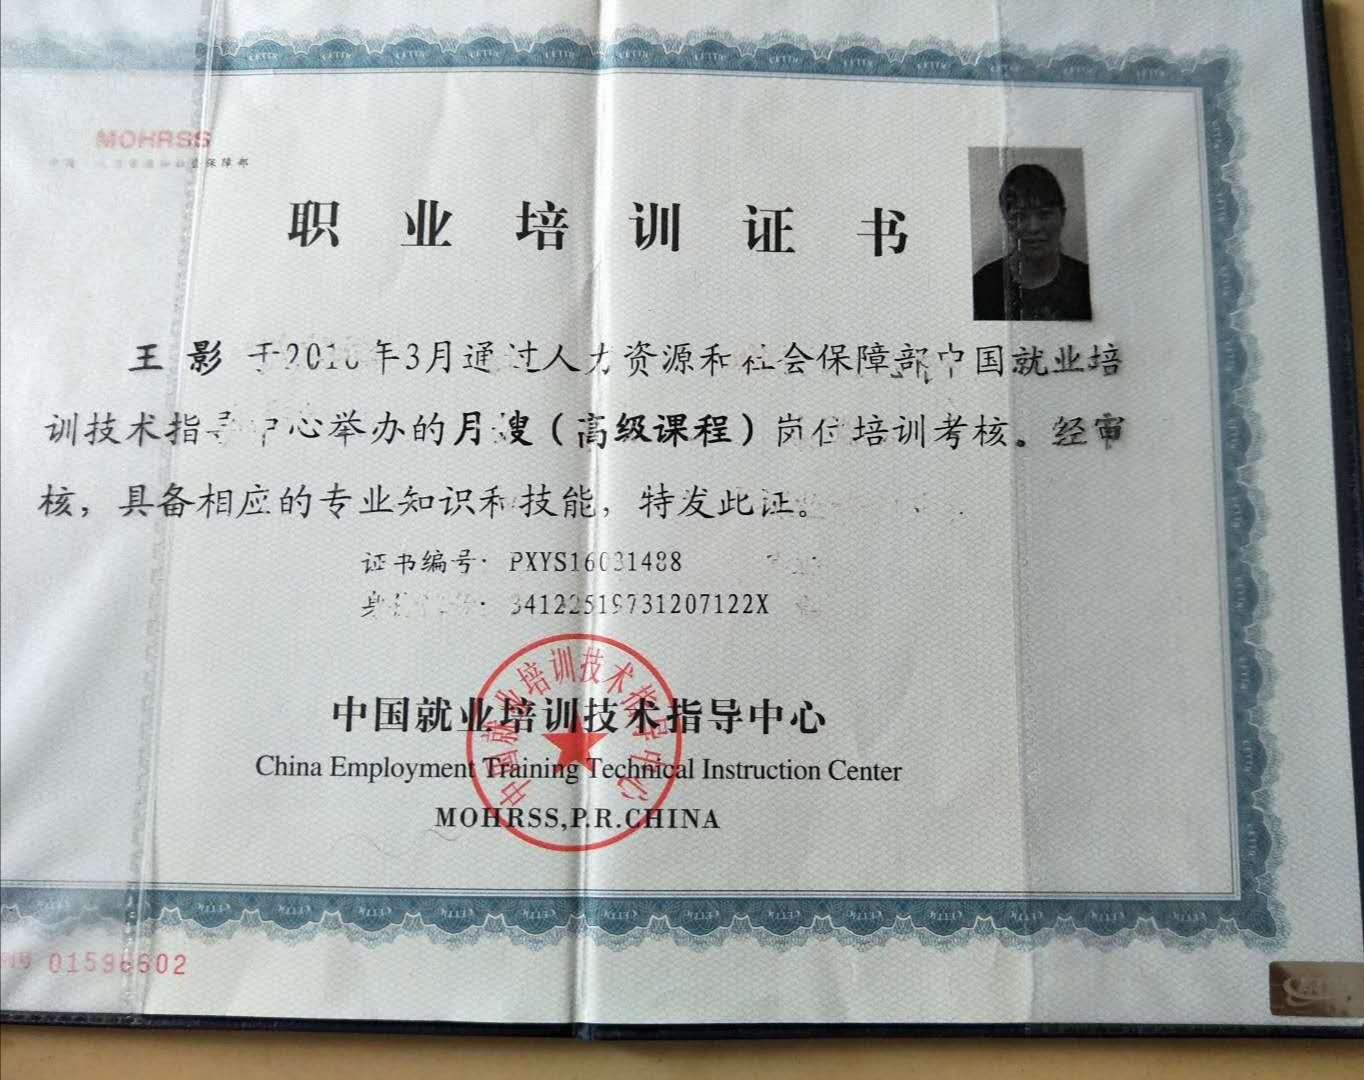 MOHRSS
保障部
职业培训证书
王影 于2016年3月通过人力资源和社会保障部中国就业培
训技术指导中心举办的月嫂（高级课程）岗位培训考核。经审
核，具备相应的专业知识和技能，特发此证。
证书编号: PXYS16031488
34122519731207122X
中国就业培训技术指导中心
中国就业培训技术指导中心
China Employment Training Technical Instruction Center
MOHRSS,P.R.CHINA
01596602